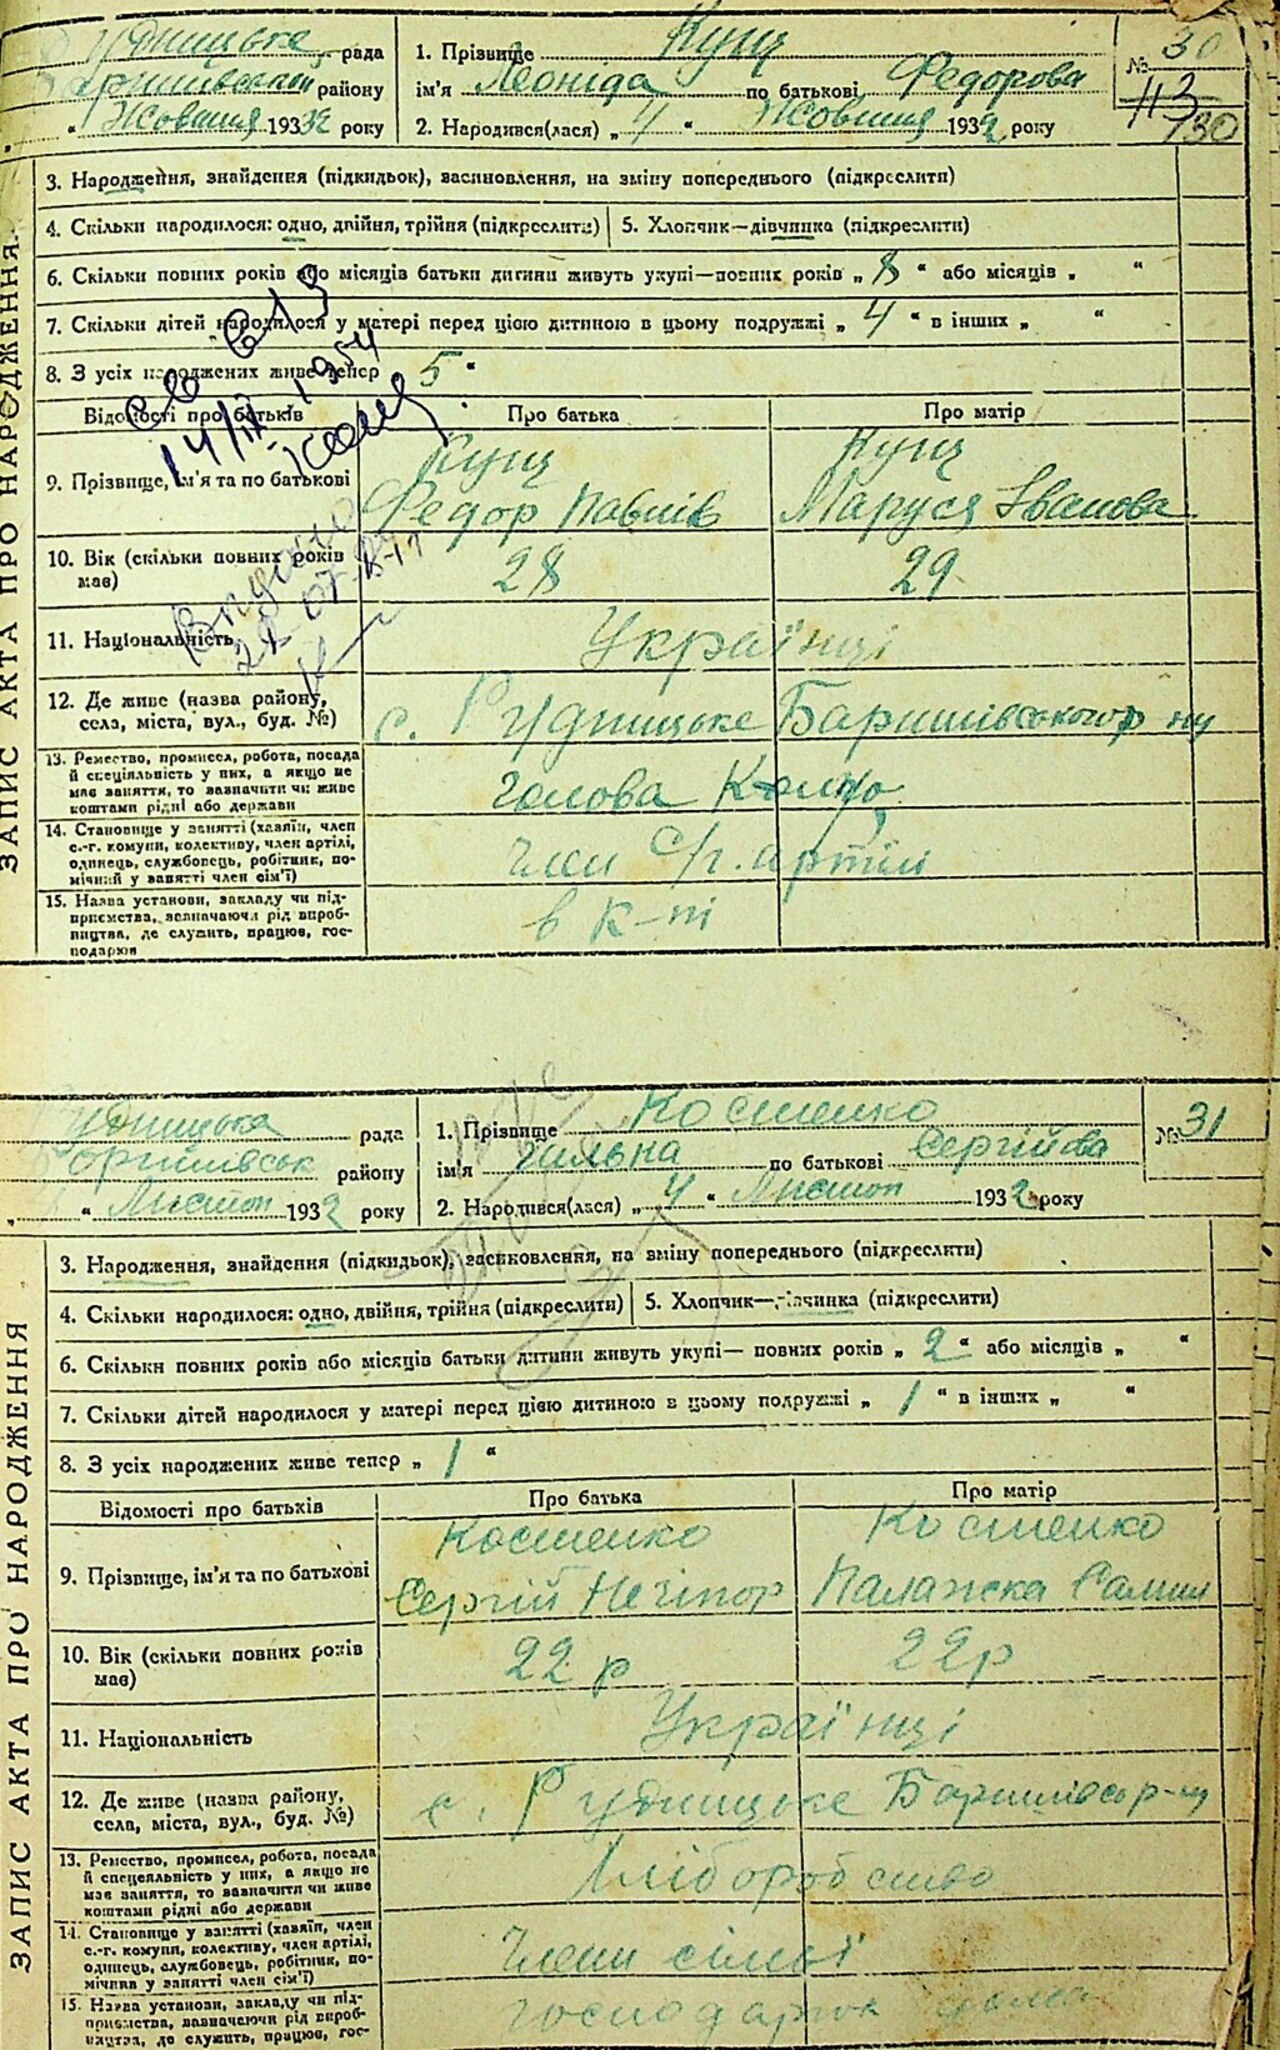 Рудницьке рада
Баришівський району
„ “ Жовтня 1932 року
1. Прізвище Кущ
ім'я Леоніда по батькові Федорова
2. Народився(лася) „ 4 “ Жовтня 1932 року
№ 30
113
130
ЗАПИС АКТА ПРО НАРОДЖЕННЯ.
3. Народження, знайдення (підкидьок), засиновлення, на зміну попереднього (підкреслити)
4. Скільки народилося: одно, двійня, трійня (підкреслити)
5. Хлопчик—дівчинка (підкреслити)
6. Скільки повних років або місяців батьки дитини живуть укупі—повних років „ 8 “ або місяців „ “
7. Скільки дітей народилося у матері перед цією дитиною в цьому подружжі „ 4 “ в інших „ “
8. З усіх народжених живе тепер 5 “
14/ІХ 1954
Відомості про батьків
Про батька
Про матір
9. Прізвище, ім'я та по батькові
Кущ
Федор Павлів
Кущ
Маруся Іванова
10. Вік (скільки повних років
має)
28
29
11. Національність
Українці
12. Де живе (назва району,
села, міста, вул., буд. №)
с. Рудницьке Баришівського р ну
13. Ремество, промисел, робота, посада
й спеціяльність у них, а якщо не
має заняття, то зазначити чи живе
коштами рідні або держави
Голова
14. Становище у занятті (хазяїн, член
с.-г. комуни, колективу, член артілі,
одинець, службовець, робітник, по-
мічний у занятті член сім'ї)
Член С/г. артіли
15. Назва установи, закладу чи під-
приємства, зазначаючи рід вироб-
ництва, де служить, працює, гос-
подарює
в к-пі
Рудницька рада
Боришівськ району
„ “ Листоп 1932 року
1. Прізвище Костенко
ім'я Гальна по батькові Сергійова
2. Народився(лася) „ 4 “ Листоп 1932 року
№ 31
ЗАПИС АКТА ПРО НАРОДЖЕННЯ
3. Народження, знайдення (підкидьок), засиновлення, на зміну попереднього (підкреслити)
4. Скільки народилося: одно, двійня, трійня (підкреслити)
5. Хлопчик—дівчинка (підкреслити)
6. Скільки повних років або місяців батьки дитини живуть укупі— повних років „ 2 “ або місяців „ “
7. Скільки дітей народилося у матері перед цією дитиною в цьому подружжі „ 1 “ в інших „ “
8. З усіх народжених живе тепер „ 1 “
Відомості про батьків
Про батька
Про матір
9. Прізвище, ім'я та по батькові
Костенко
Сергій Нечіпор
Костенко
Палажка Самил
10. Вік (скільки повних років
має)
22 р
22р
11. Національність
Українці
12. Де живе (назва району,
села, міста, вул., буд. №)
с. Рудницьке Баришівсь р-ну
13. Ремество, промисел, робота, посада
й спецеяльність у них, а якщо не
має заняття, то зазначити чи живе
коштами рідні або держави
Хліборобство
14. Становище у занятті (хазяїн, член
с.-г. комуни, колективу, член артілі,
одинець, службовець, робітник, по-
мічник у занятті член сім'ї)
Члени сільгі
15. Назва установи, закладу чи під-
приємства, зазначаючи рід вироб-
ництва, де служить, працює, гос-